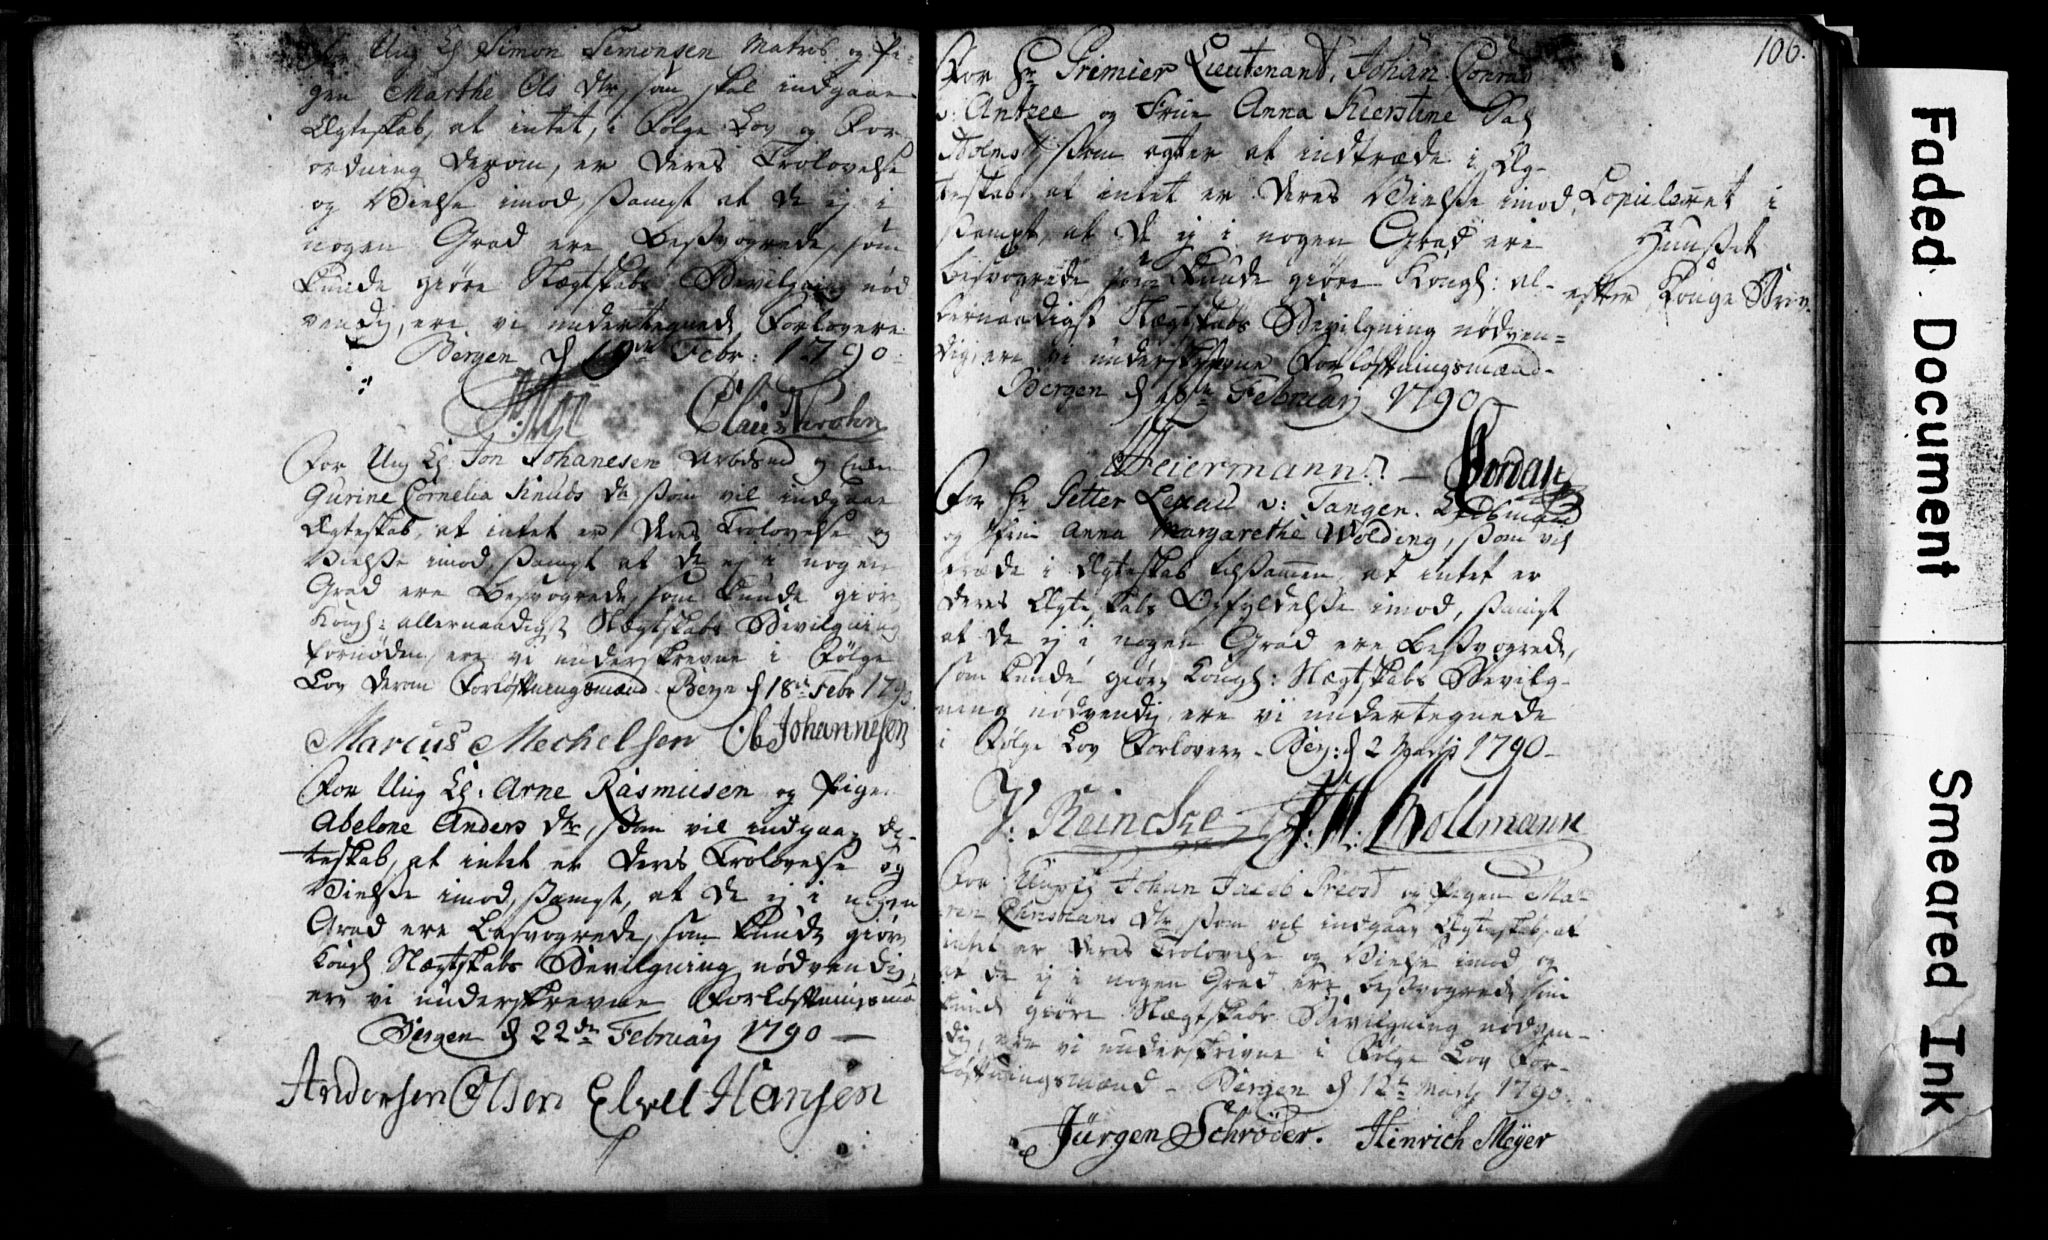 Ung K Simon Simonsen Matros og Pi-
gen Marthe Ols Dtr, som skal indgaae
Ægteskab, at intet, i Følge Lov og For-
ordning derom, er deres Trolovelse
og Vielse imod, sampt at de ej i
nogen Grad ere Besvogrede, som
kunde giøre Slægtskabs Bevilgning nød
vendig, ere vi undertegnede Forlovere
Bergen d Febr: 1790
Claus
For Ung K Jon Johanesen Arbdsmd og
Gurine Cornelia Knuds dr, som vil indgaae
Ægteskab, at intet er deres Trolovelse og
Vielsse imod, sampt at de ej i nogen
Grad ere Besvogrede, som kunde giøre
Kongl: allernaadigst Slægtskabs Bevilgning
fornøden, ere vi underskrevne i Følge
Lov derom Forløftningsmænd Bergn d 18de Febr 1790
Marcus Mechelsen Ole Johannesen
For Ung K: Arne Rasmusen og Pigen
Abelone Anders Dtr, som vil indgaae Æg-
teskab, at intet er deres Trolovelse og
Vielsse imod, sampt, at de ej i nogen
Grad ere besvogrede, som kunde giøre
Kongl Slægtskabs Bevilgning nødvendig,
ere vi underskrevne Forløftningsmæ
Bergen d 22de February 1790
Andersen Olsen Elvell Hansen
106.
For Hr Primier Lieutenant Johan Conrad
v: Antzee og Frue Anna Kierstine Sal
Holms som agter at indtræde i Æg-
teskab, at intet er deres Vielsse imod,
sampt, at de ej i nogen Grad ere
besvogrede som kunde giøre Kongl: al-
lernaadigst Slægtskabs Bevilgning nødven=
dig, ere vi underskrevne Forløftningsmænd
Bergen d 18de February 1790
Copuleret i
Huuset
efter Konge Brev.
Meiermann Jordan
For Hr Petter Lexau v: Tangen. Kiøbmand
og Frue Anna Margarethe Wolding, som vil
træde i Ægteskab tilsammen, at intet er
deres Ægteskabs Opfyldelsse imod, sampt
at de ej i nogen Grad ere besvogrede,
som kunde giøre Kongl: Slægtskabs Bevilg-
ning nødvendig ere vi undertegnede
i Følge Lov Forlovere - Berg: d 2 Marty 1790
J: Reincke J. H. Bollmann
For Ungkl Johan Jacob Preost og Pigen Ma-
ren Christians Dtr som vil indgaae Ægteskab, at
intet er deres Trolovelse og Vielse imod og
at de ej i nogen Grad ere besvogrede som
kunde giøre Slægtskabs Bevilgning nødven-
dig, ere vi underskrivne i Følge Lov For-
løftningsmænd - Bergen d 12te Marty 1790.
Jürgen Schröder. Hinrich Meÿer
Faded Document
Smeared Ink